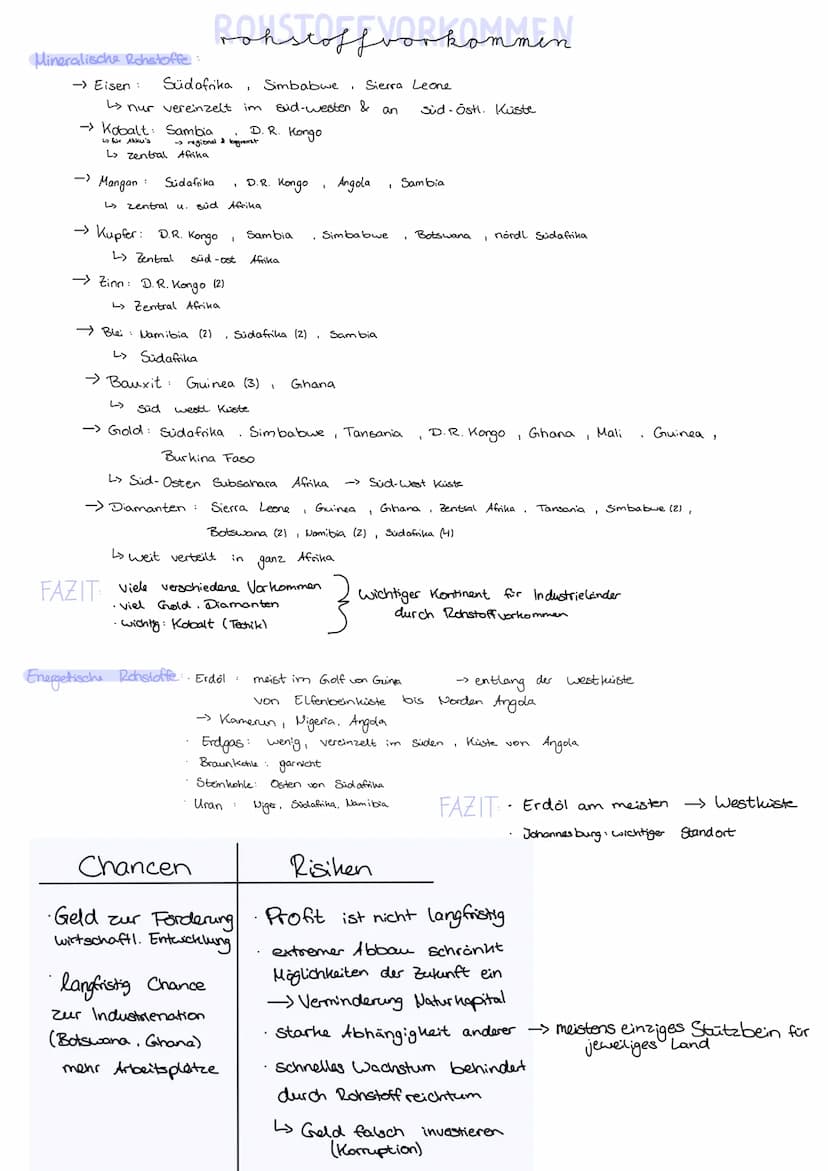 ROHSTOFFVORKOMMEN
rohstoffvorkommen
Mineralische Rohstoffe :
→ Eisen : Südafrika , Simbabwe , Sierra Leone
↳ nur vereinzelt im süd-westen & an süd-östl. Küste
→ Kobalt : Sambia , D.R. Kongo
↳ für Akku's → regional begrenzt
↳ zentral Afrika
→ Mangan : Südafrika , D.R. Kongo , Angola , Sambia
↳ zentral u. süd Afrika
→ Kupfer : D.R. Kongo , Sambia , Simbabwe , Botswana , nördl Südafrika
↳ Zentral süd-ost Afrika
→ Zinn : D.R. Kongo (2)
↳ Zentral Afrika
→ Blei : Namibia (2) , Südafrika (2) , Sambia
↳ Südafrika
→ Bauxit : Guinea (3) , Ghana
↳ süd westl Küste
→ Gold : Südafrika , Simbabwe , Tansania , D.R. Kongo , Ghana , Mali , Guinea ,
Burkina Faso
↳ Süd-Osten Subsahara Afrika → Süd-West Küste
→ Diamanten : Sierra Leone , Guinea , Ghana , Zentral Afrika , Tansania , Simbabwe (2) ,
Botswana (2) , Namibia (2) , Südafrika (4)
↳ weit verteilt in ganz Afrika
FAZIT: viele verschiedene Vorkommen
· viel Gold , Diamanten
· wichtig : Kobalt (Technik)
wichtiger Kontinent für Industrieländer
durch Rohstoffvorkommen
Energetische Rohstoffe : · Erdöl : meist im Golf von Guinea → entlang der Westküste
von Elfenbeinküste bis Norden Angola
→ Kamerun , Nigeria , Angola
· Erdgas : wenig , vereinzelt im Süden , Küste von Angola
· Braunkohle : garnicht
· Steinkohle : Osten von Südafrika
· Uran : Niger , Südafrika , Namibia
FAZIT: · Erdöl am meisten → Westküste
· Johannesburg : wichtiger Standort
Chancen
· Geld zur Förderung
wirtschaftl. Entwicklung
· langfristig Chance
zur Industrienation
(Botswana , Ghana)
mehr Arbeitsplätze
Risiken
· Profit ist nicht langfristig
· extremer Abbau schränkt
Möglichkeiten der Zukunft ein
→ Verminderung Naturkapital
· starke Abhängigkeit anderer → meistens einziges Stützbein für
jeweiliges Land
· schnelles Wachstum behindert
durch Rohstoffreichtum
↳ Geld falsch investieren
(Korruption)